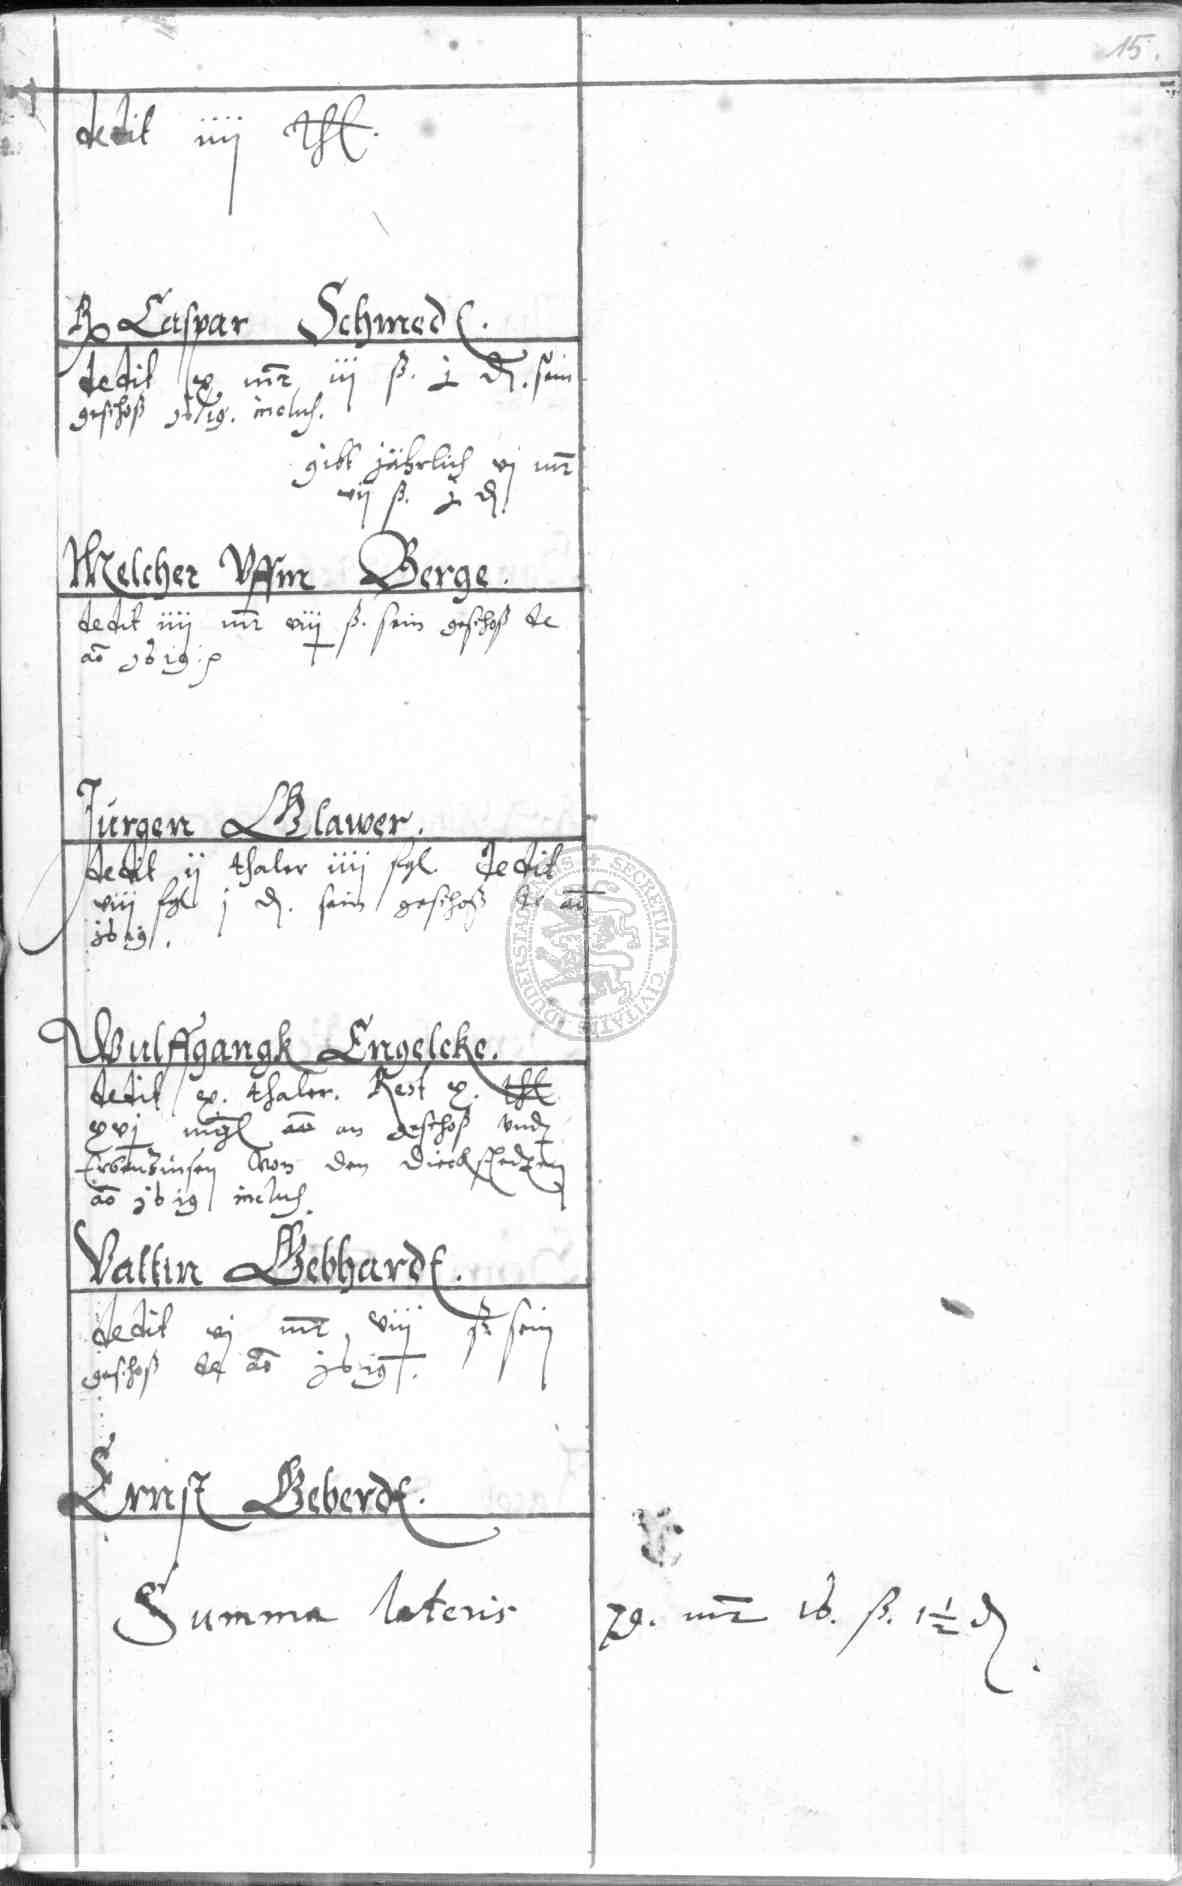 15.
dedit iiij thl.
Caspar Schmedt.
dedit x mr iij ß. j d. sein
geschoß 1619. inclus.
gibt jährlich vj mr
vij ß. j d.
Melcher Vffm Berge.
dedit iiij mr viij ß. sein geschoß de
ao 1619.
Jürgen Blawer.
dedit ij thaler iiij fgl. dedit
viij fgl j d. sein geschoß de ao
1619.
Wulffgangk Engelcke.
dedit x. thaler. Rest x. thl
xvj mgl ao an geschoß vnd
Erbenzinsen von den
ao 1619 inclus.
Valtin Gebhardt.
dedit vj mr viij ß sein
geschoß de ao 1619.
Ernst Geberdt.
Summa lateris 79. mr 16. ß. 1 1/2 d
SECRETUM CIVITATIS DUDERSTADENSIS